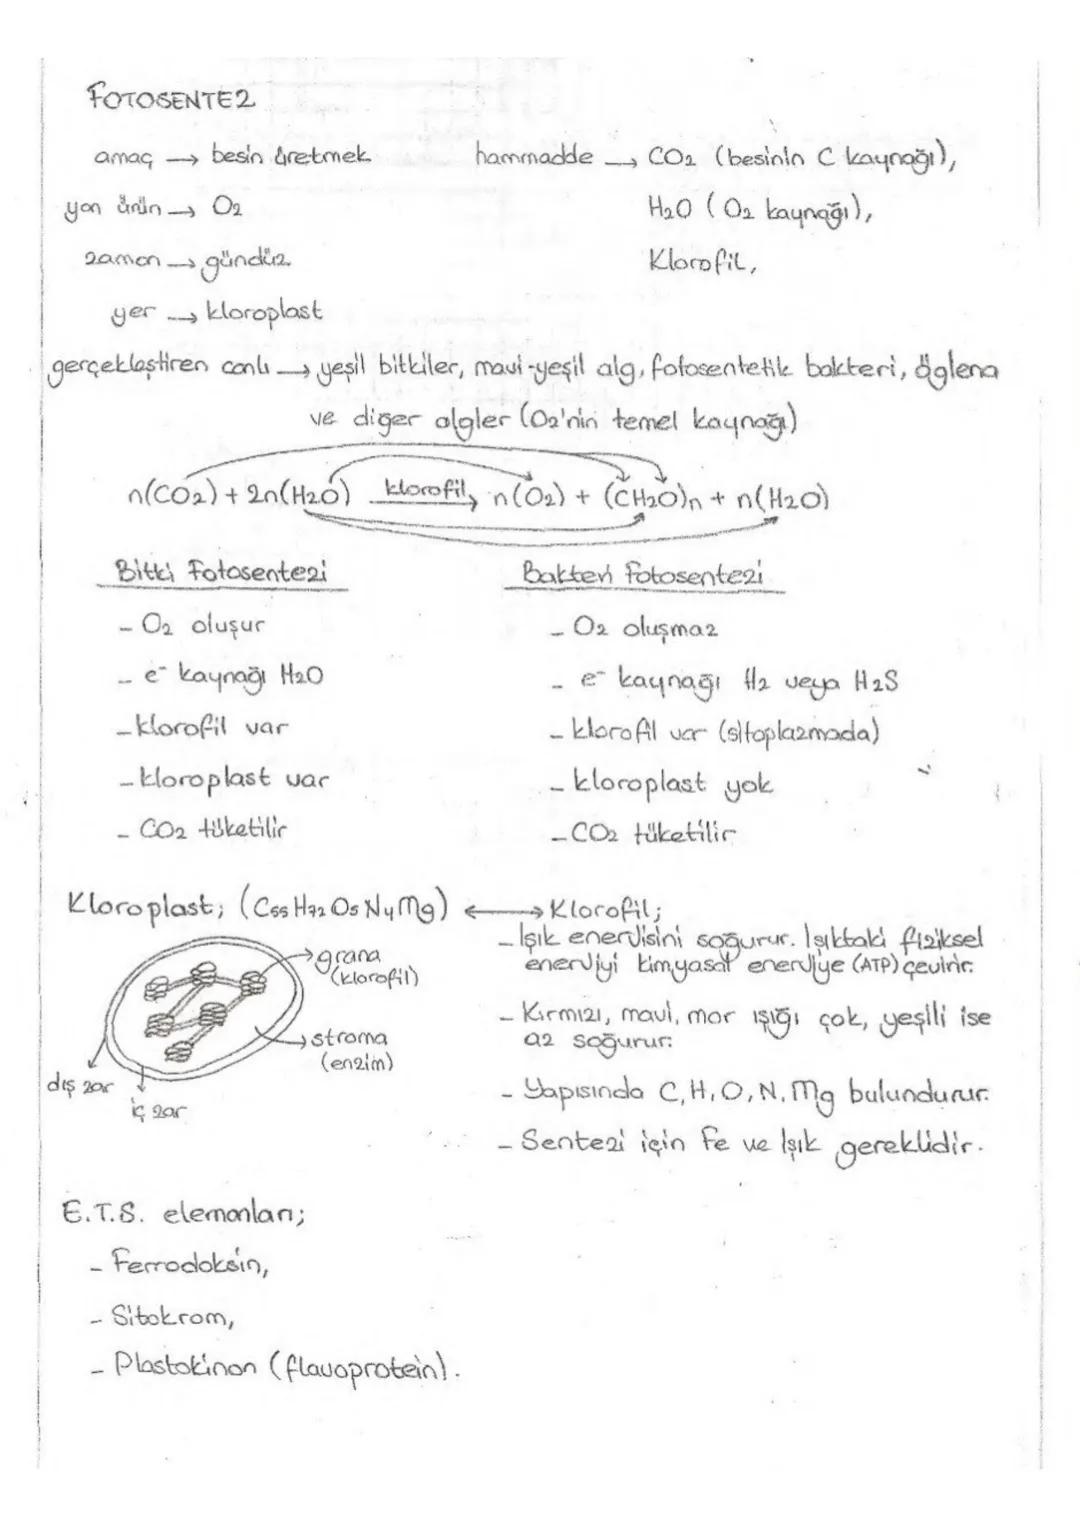 FOTOSENTEZ
amaç → besin üretmek hammadde → CO2 (besinin C kaynağı),
yan ürün → O2 H2O (O2 kaynağı),
zaman → gündüz Klorofil,
yer → kloroplast
gerçekleştiren canlı → yeşil bitkiler, mavi-yeşil alg, fotosentetik bakteri, öglena
ve diğer algler (O2'nin temel kaynağı)
n(CO2) + 2n(H2O) klorofil → n(O2) + (CH2O)n + n(H2O)
Bitki Fotosentezi Bakteri Fotosentezi
- O2 oluşur - O2 oluşmaz
- e⁻ kaynağı H2O - e⁻ kaynağı H2 veya H2S
- klorofil var - klorofil var (sitoplazmada)
- kloroplast var - kloroplast yok
- CO2 tüketilir - CO2 tüketilir
Kloroplast; (C55H72O5N4Mg) ↔ Klorofil;
- Işık enerjisini soğurur. Işıktaki fiziksel
enerjiyi kimyasal enerjiye (ATP) çevirir.
grana
(klorofil)
- Kırmızı, mavi, mor ışığı çok, yeşili ise
az soğurur.
stroma
(enzim)
dış zar
iç zar
- Yapısında C, H, O, N, Mg bulundurur.
- Sentezi için Fe ve Işık gereklidir.
E.T.S. elemanları;
- Ferrodoksin,
- Sitokrom,
- Plastokinon (flavoprotein).